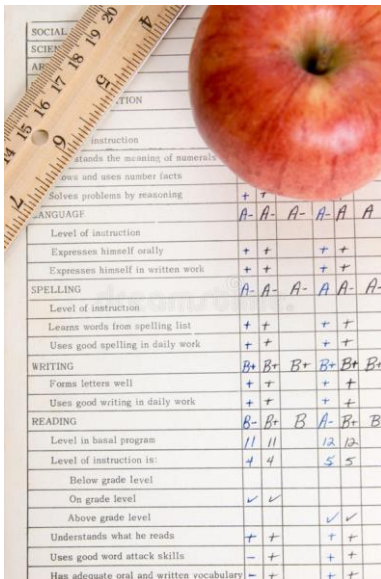 20
19
18
17
16
15
14
4
5
6
7
SOCIAL
SCIEN
instruction
stands the meaning of numerals
ows and uses number facts
Solves problems by reasoning + +
LANGUAGE A- A- A- A- A A
Level of instruction
Expresses himself orally + + + +
Expresses himself in written work + + + +
SPELLING A- A- A- A A- A-
Level of instruction
Learns words from spelling list + + + +
Uses good spelling in daily work + + + +
WRITING B+ B+ B+ B+ B+ B+
Forms letters well + + + +
Uses good writing in daily work + + + +
READING B- B+ B A- B+ B
Level in basal program 11 11 12 12
Level of instruction is: 4 4 5 5
Below grade level
On grade level ✓ ✓
Above grade level ✓ ✓
Understands what he reads + + + +
Uses good word attack skills - + + +
Has adequate oral and written vocabulary - + + +